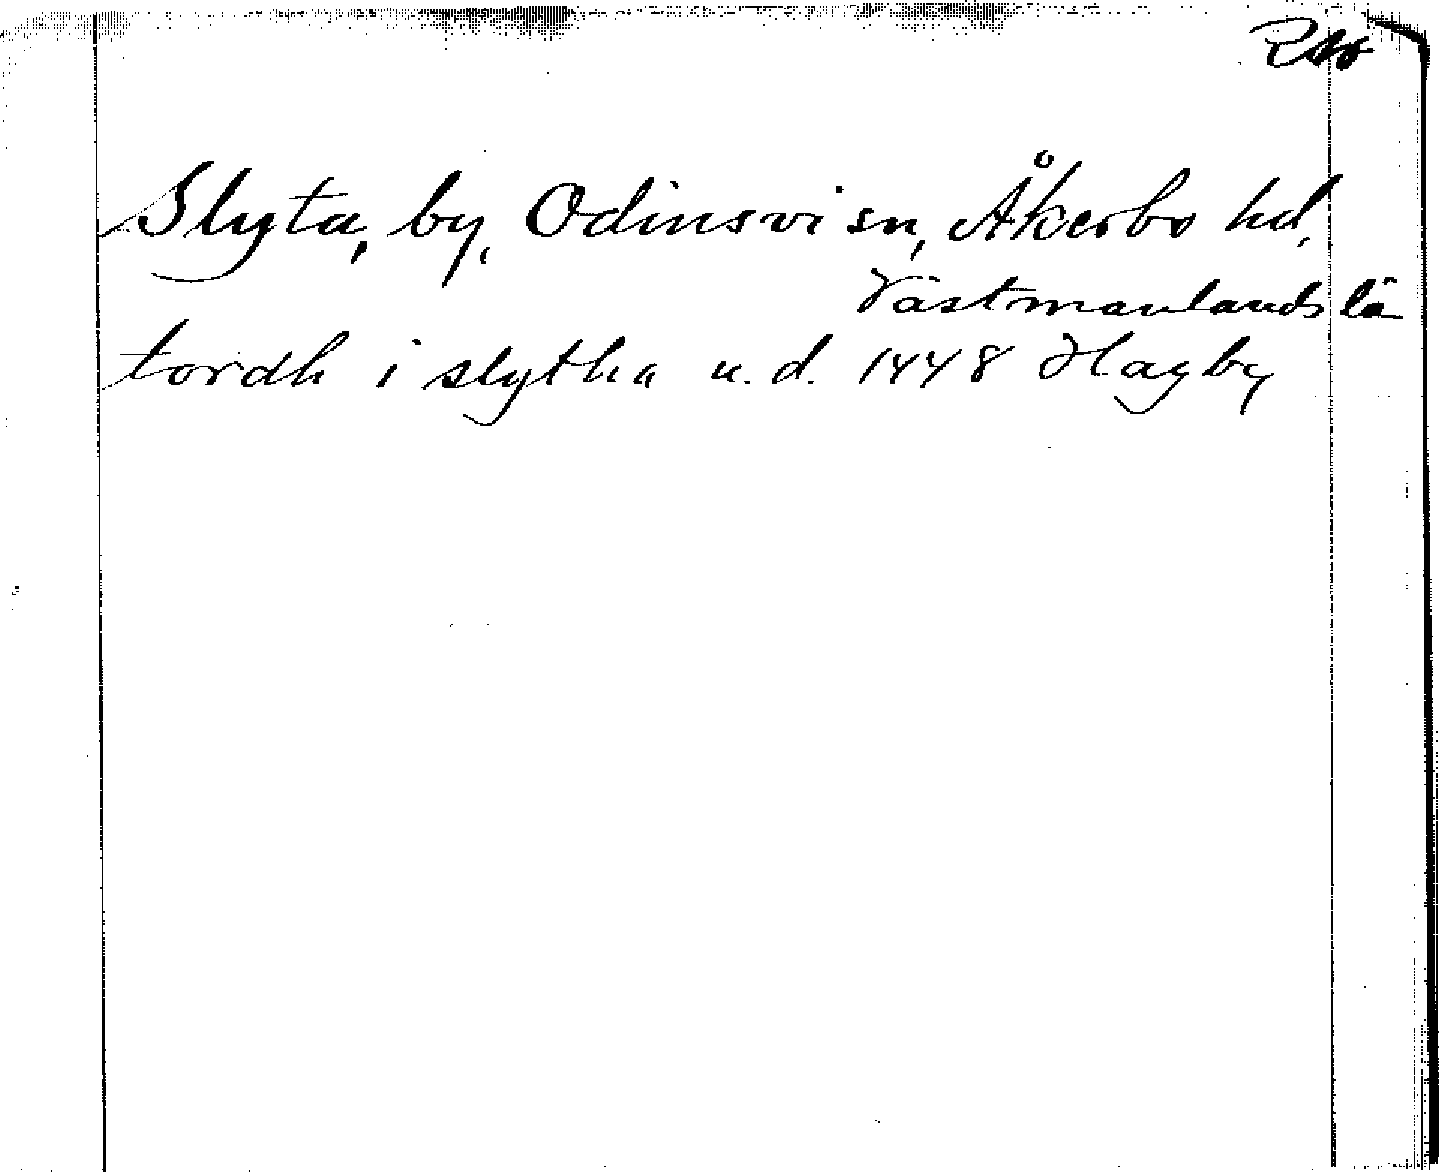 Slyta, by, Odinsvi sn, Åkerbo hd,
Västmanlands lä
tordh i slytha u.d. 1448 Hagby